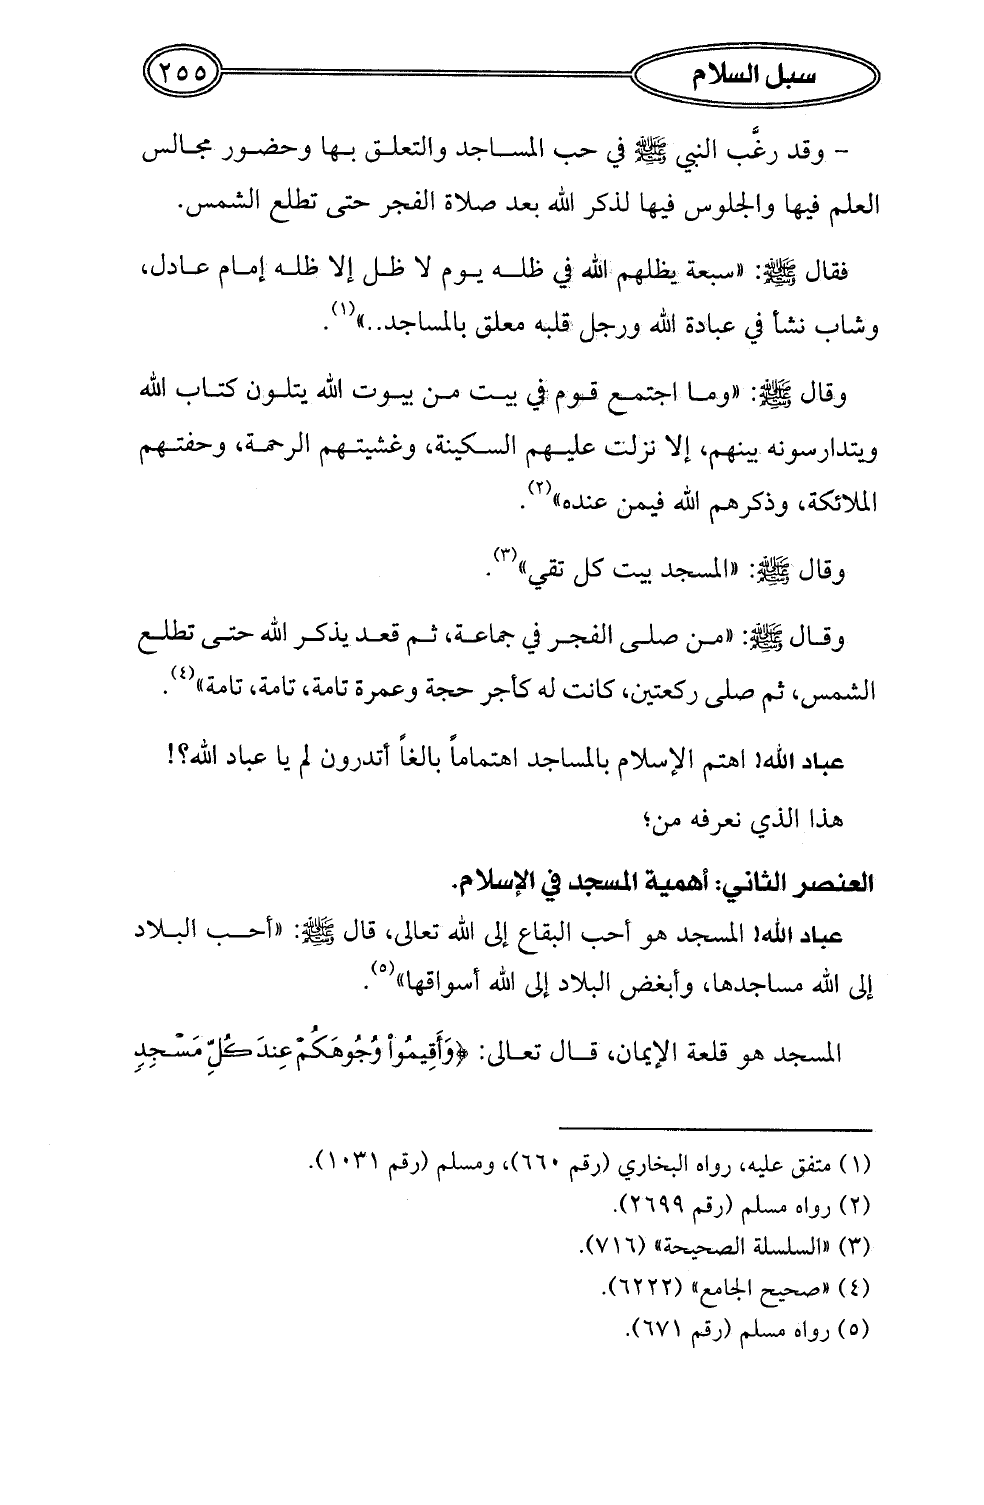 سبل السلام ٢٥٥
- وقد رغَّب النبي ﷺ في حب المساجد والتعلق بها وحضور مجالس
العلم فيها والجلوس فيها لذكر الله بعد صلاة الفجر حتى تطلع الشمس.
فقال ﷺ: «سبعة يظلهم الله في ظله يوم لا ظل إلا ظله إمام عادل،
وشاب نشأ في عبادة الله ورجل قلبه معلق بالمساجد..»(١).
وقال ﷺ: «وما اجتمع قوم في بيت من بيوت الله يتلون كتاب الله
ويتدارسونه بينهم، إلا نزلت عليهم السكينة، وغشيتهم الرحمة، وحفتهم
الملائكة، وذكرهم الله فيمن عنده»(٢).
وقال ﷺ: «المسجد بيت كل تقي»(٣).
وقال ﷺ: «من صلى الفجر في جماعة، ثم قعد يذكر الله حتى تطلع
الشمس، ثم صلى ركعتين، كانت له كأجر حجة وعمرة تامة، تامة، تامة»(٤).
عباد الله! اهتم الإسلام بالمساجد اهتماماً بالغاً أتدرون لم يا عباد الله؟!
هذا الذي نعرفه من؛
العنصر الثاني: أهمية المسجد في الإسلام.
عباد الله! المسجد هو أحب البقاع إلى الله تعالى، قال ﷺ: «أحب البلاد
إلى الله مساجدها، وأبغض البلاد إلى الله أسواقها»(٥).
المسجد هو قلعة الإيمان، قال تعالى: ﴿وَأَقِيمُوا۟ وُجُوهَكُمْ عِندَ كُلِّ مَسْجِدٍ
(١) متفق عليه، رواه البخاري (رقم ٦٦٠)، ومسلم (رقم ١٠٣١).
(٢) رواه مسلم (رقم ٢٦٩٩).
(٣) «السلسلة الصحيحة» (٧١٦).
(٤) «صحيح الجامع» (٦٢٢٢).
(٥) رواه مسلم (رقم ٦٧١).